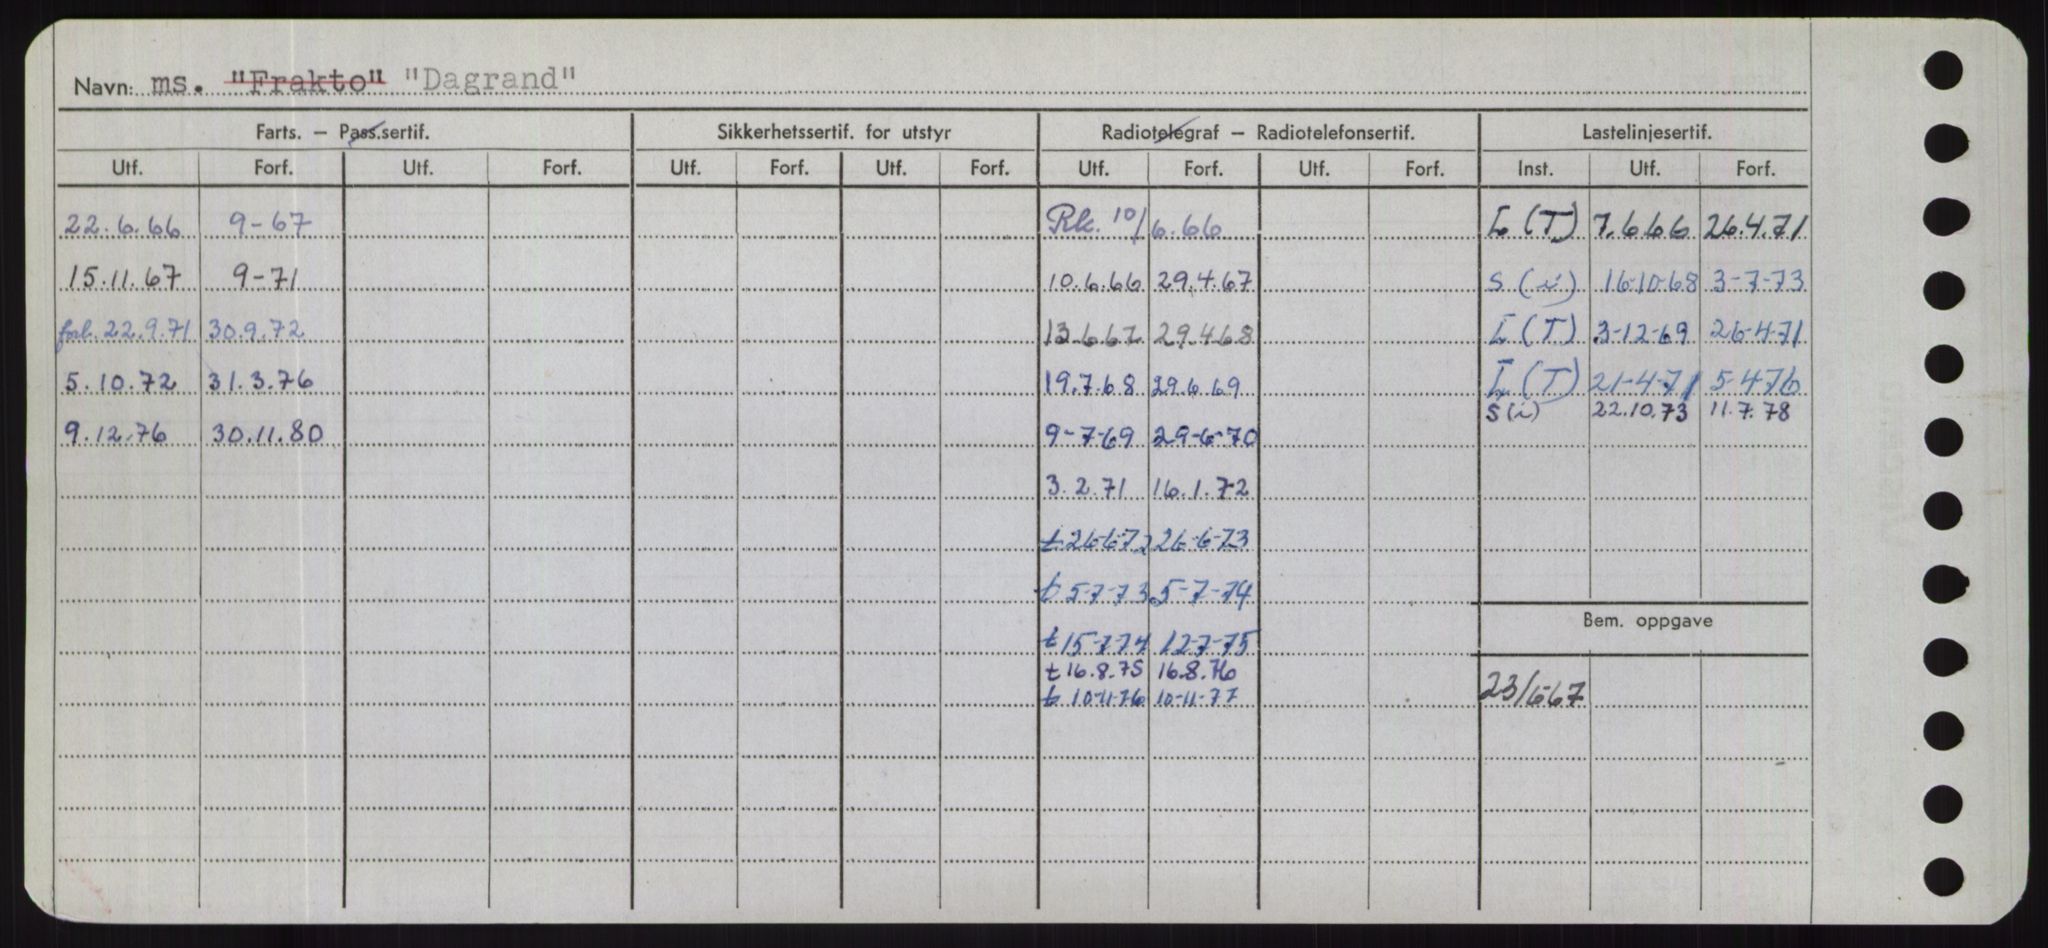 Navn: ms. "Frakto" "Dagrand"
Farts. — Pass.sertif. Sikkerhetssertif. for utstyr Radiotelegraf — Radiotelefonsertif. Lastelinjesertif.
Utf. Forf. Utf. Forf. Utf. Forf. Utf. Forf. Utf. Forf. Utf. Forf. Inst. Utf. Forf.
22.6.66 9-67 Rk. 10/6.66 L (T) 7.6.66 26.4.71
15.11.67 9-71 10.6.66 29.4.67 S (i) 16-10-68 3-7-73
forl. 22.9.71 30.9.72 13.6.67 29.4.68 L (T) 3-12-69 26-4-71
5.10.72 31.3.76 19.7.68 29.6.69 L (T) 21-4-71 5-4-76
S (i) 22.10.73 11.7.78
9.12.76 30.11.80 9-7-69 29-6-70
3.2.71 16.1.72
t 26-6-72 26-6-73
t 5-7-73 5-7-74
Bem. oppgave
t 15-7-74 12-7-75
t 16.8.75 16.8.76
t 10-11-76 10-11-77 23/6-67